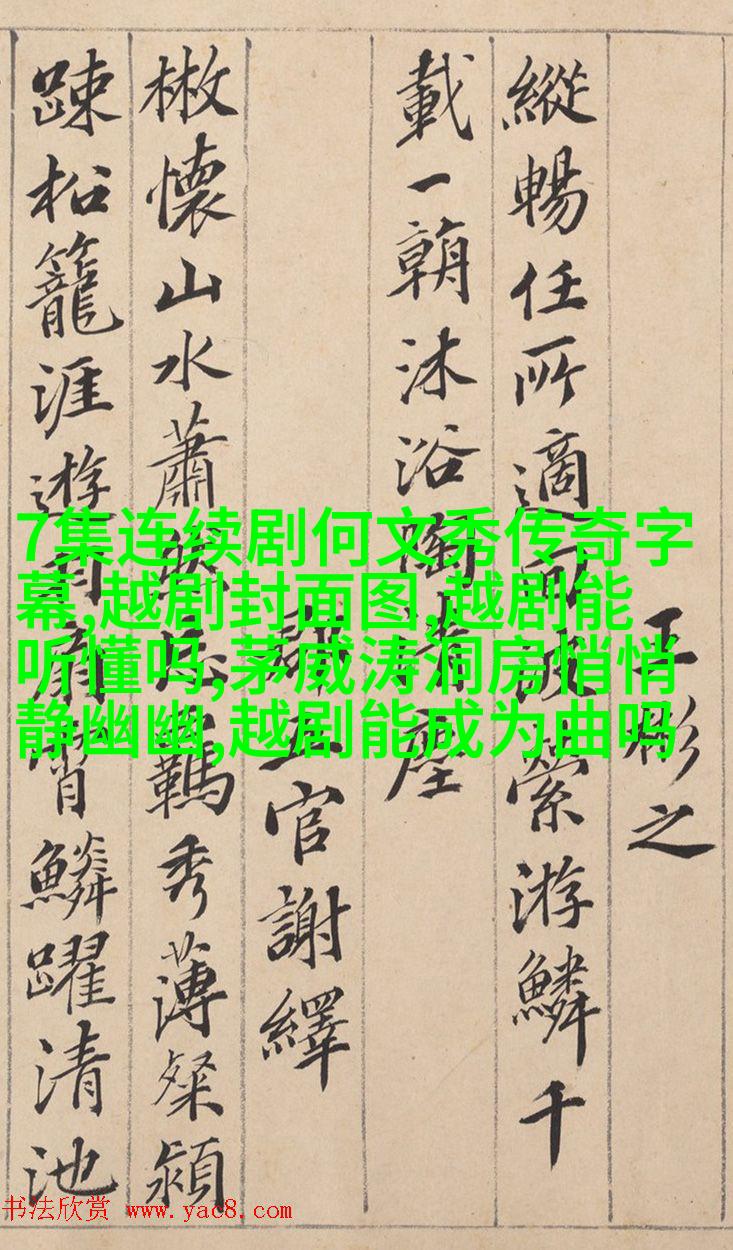 王彬之
縱暢任所適回波縈游鱗千
載一朝沐浴陶清塵
郡五官謝繹
散懷山水蕭然忘羈秀薄粲穎
踈松籠涯遊羽扇霄鱗躍清池
7集连续剧何文秀传奇字
幕,越剧封面图,越剧能
听懂吗,茅威涛洞房悄悄
静幽幽,越剧能成为曲吗
书法欣赏 www.yac8.com